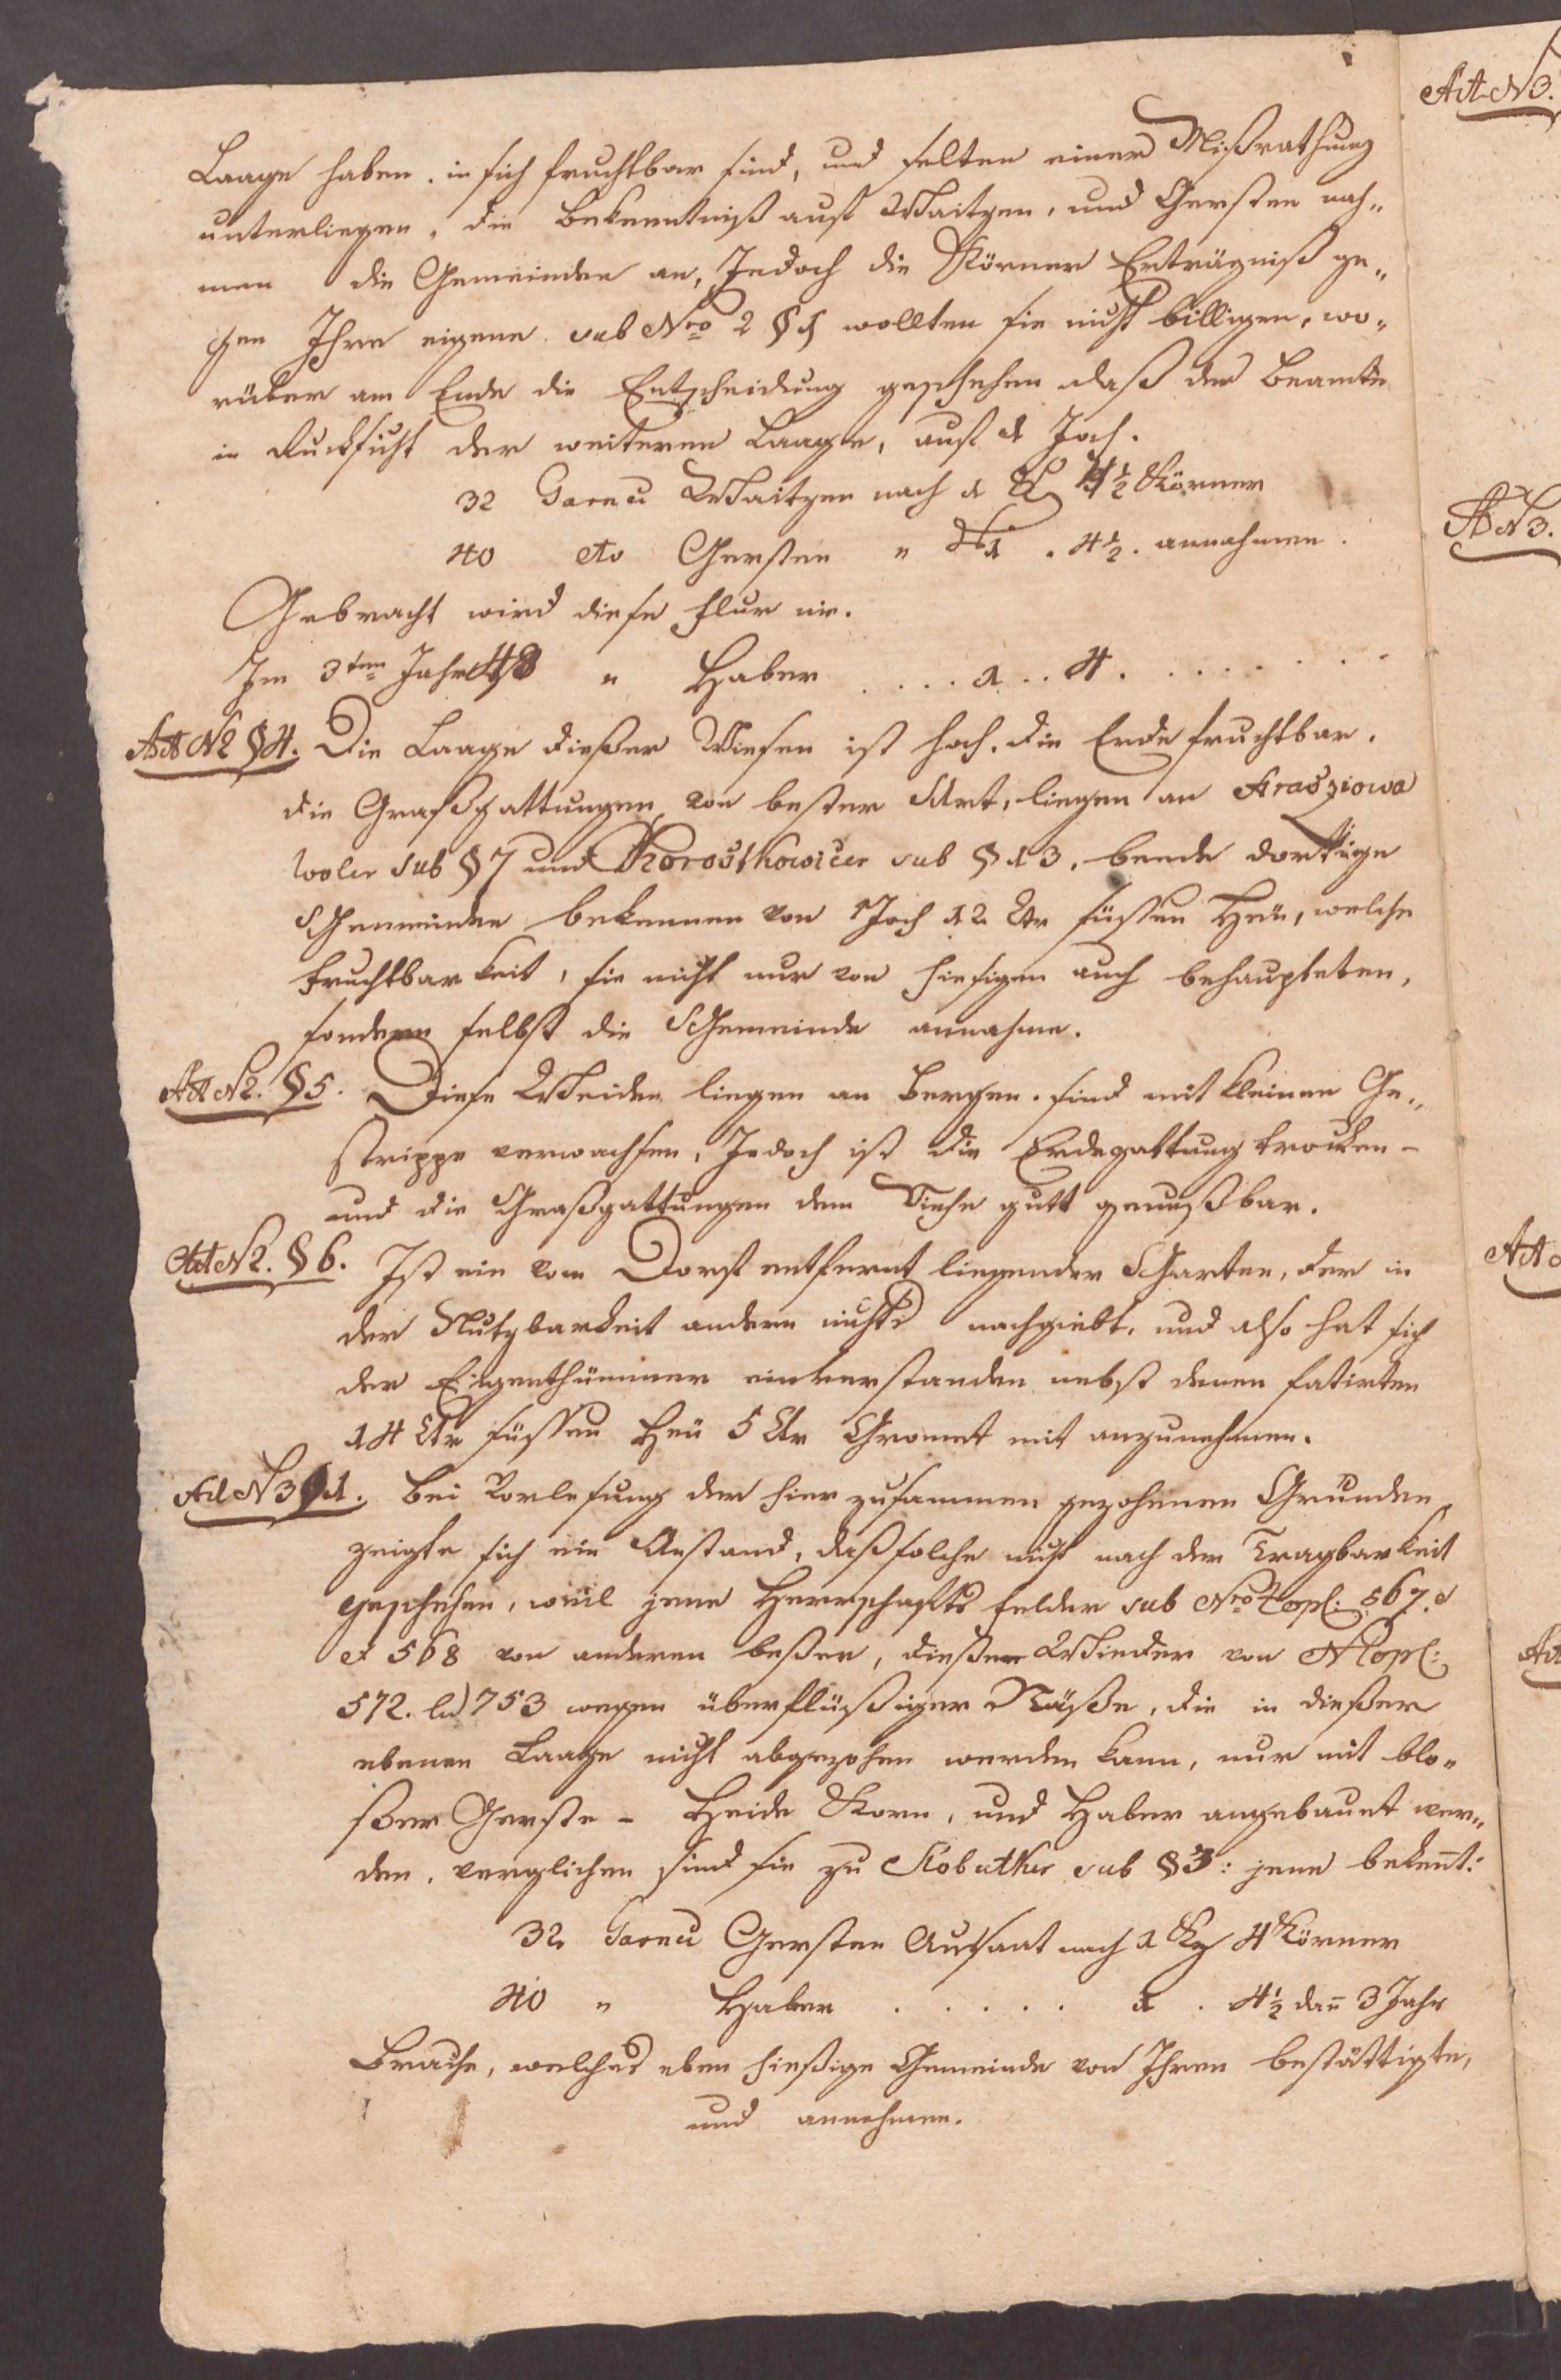 Laage haben. in sich fruchtbar sind, und selten einer Mißrathung
unterliegen, die Bekenntniß aus Waitzen, und Gersten nah„
men die Gemeinden an, Jedoch die Körner Erträgniß ge„
gen Ihre eigene sub Nro 2 § 1 wollten sie nicht billigen, wo„
rüber am Ende die Entscheidung geschehen daß der Beamte
in Rucksicht der weiteren Laage, auf 1 Joch.
32 Garnec Waitzen nach 1 4½ Körner
40 dto Gersten „ 1 . 4½. annahmen.
Gebracht wird diese Flur nie.
Im 3ten Jahr 48 „ Haber . . . . 1 . . 4 . . . . . . . .
Ad N2 §4. Die Laage dießer Wiesen ist hoch. die Erde fruchtbar.
die Graßgattungen von bester Art, liegen an
woler sub § 7 und Chorostkowicer sub § 13. beede dortige
Gemeinden bekennen von 1 Joch 12 Ctr süssen Heü, welche
Fruchtbarkeit, sie nicht nur von hiesigen auch behaupteten,
sondern selbst die Gemeinde annahme.
Ad N2. §5. Diese Weiden liegen an Bergen. sind mit kleinen Ge„
strippe verwachsen, Jedoch ist die Erdegattung trocken –
und die Graßgattungen dem Viehe gutt genußbar.
Ad N2. §6. Ist ein vom Dorf entfernt liegender Garten, der in
der Nutzbarkeit andern nichts nachgiebt, und also hat sich
der Eigenthümmer einverstanden nebst denen fatirten
14 Ctr süssen Heü 5 Ctr Gromet mit anzunehmen.
Ad N3 §1. Bei Vorlesung der hier zusammen gezohenen Gründen,
zeigte sich ein Anstand, daß solche nicht nach der Tragbarkeit
geschehen, weil jene Herrschafts Felder sub Nro Topl: 567.
et 568 von anderen beßer, dießer Wieder von N Topl:
572. 753 wegen überflüßiger Näße, die in dießer
ebenen Laage nicht abgezohen werden kann, nur mit blo„
ßer Gerste – Heide Korn, und Haber angebauet wer„
den. verglichen sind sie zu sub § 3: jene bekent:
32 Garnec Gersten Aussaat nach 1 4 Körner
40 „ Haber . . . . . 1 . 4½ dañ 3 Jahr
Brache, welches eben hießige Gemeinde von Ihren bestättigte,
und annehmen.
Ad N3.
Ad N3.
Ad
Ad